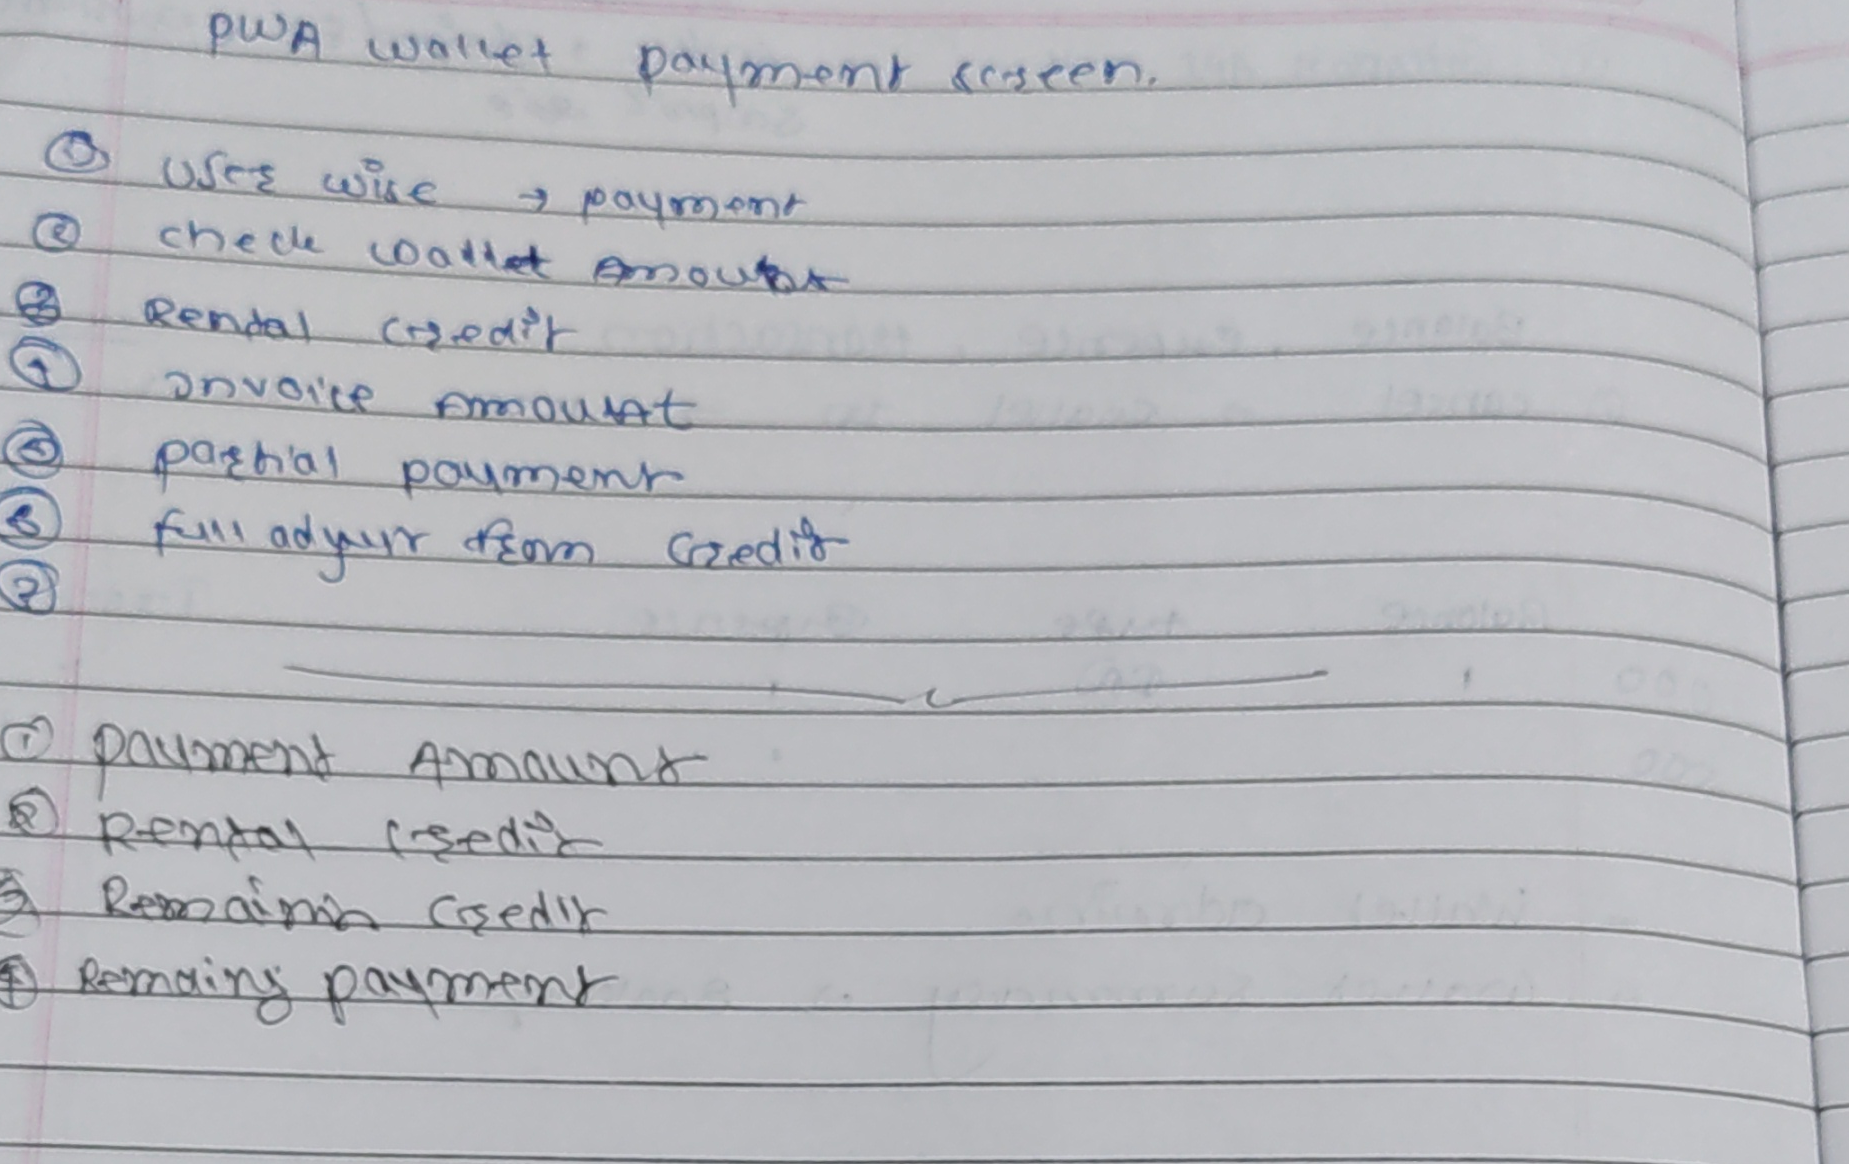 PWA wallet payment screen.
① User wise → payment
② check wallet Amount
③ Rental credit
④ Invoice Amount
⑤ partial payment
⑥ full from Credit
⑦
① Payment Amount
② Rental credit
③ Remainin Credit
④ Remaing payment